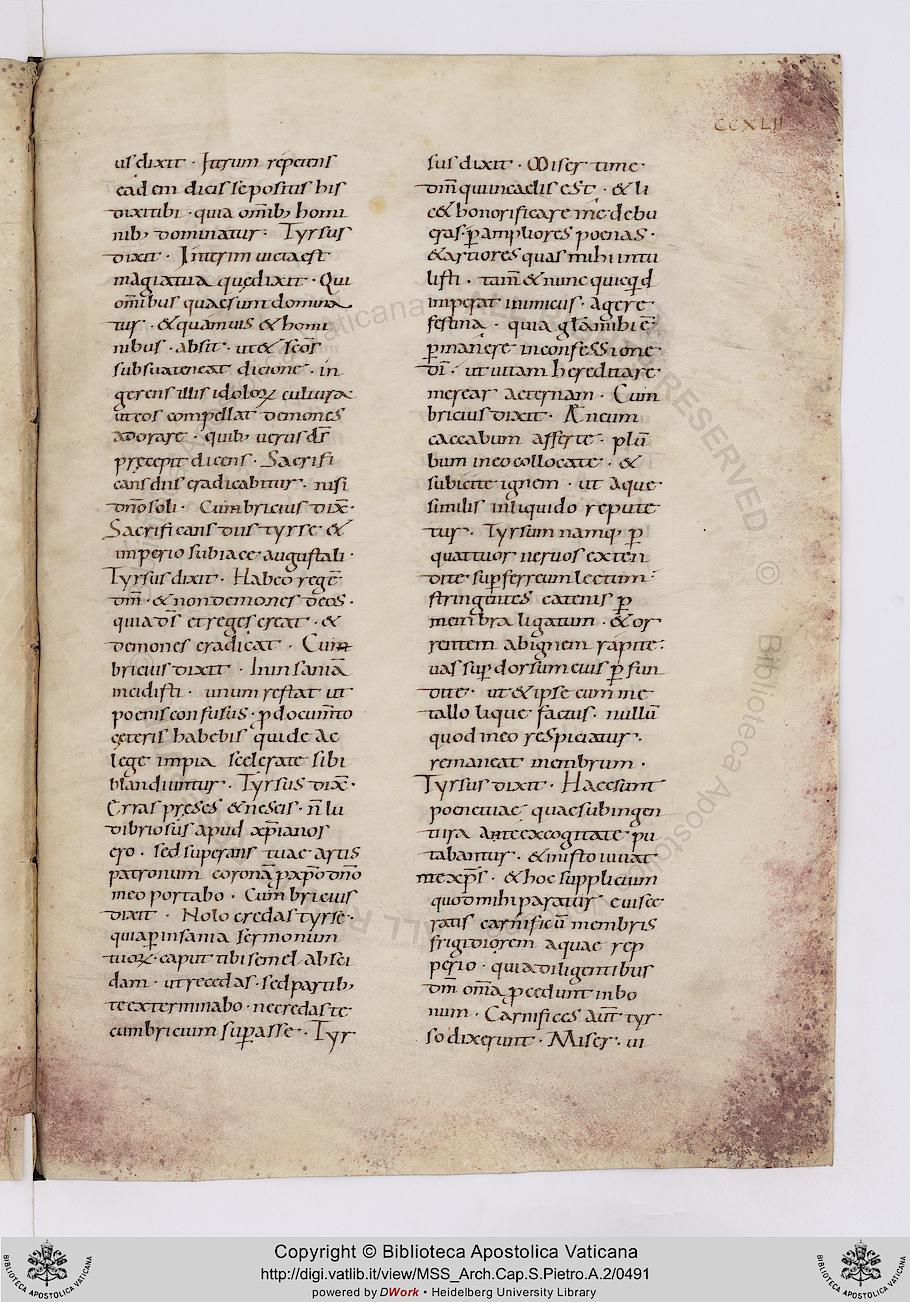 CCXLII
us dixit · Iterum repetens
eadem dicis se positus his
dixi tibi · quia omĩb; homi
nib; dominatur · Tyrsus
dixit · Interim victa est
magia tua quę dixit · Qui
omĩbus quae sunt domina
tur · & quamuis & homi
nibus · absit · ut & scõs
subsua teneat dicione · in
gerens illis idoloꝝ culturae
ut eos compellat demones
adorare · quib; uerus d̅s
pręcepit dicens · Sacrifi
cans diis eradicabitur · nisi
dñ̅o soli · Cumbricius dix̅ ·
Sacrificans diis tyrse &
imperio subiace augustali ·
Tyrsus dixit · Habeo regẽ
dm̅ · & non demones deos ·
quia d̅s et reges creat · &
demones eradicat · Cum
bricius dixit · In insaniã
incidisti · unum restat ut
poenis confusus · ꝓ documto
ęteris habebis qui de ae
lege impia scelerate sibi
blandiuntur · Tyrsus dix̅ ·
Erras pręses & nescis · n̅ lu
dibriosus apud xp̅ianos
ero · sed superans tuae artis
patronum coronã ꝑ xp̅o dñ̅o
meo portabo · Cumbricius
dixit · Nolo credas tyrse ·
quia ꝑ insania sermonum
tuoꝝ · caput tibi semel absci
dam · ut recedas · sed partib;
te exterminabo · ne credas te
cumbricium suꝑasse · Tyr
sus dixit · Miser time
dm̅ qui in caelis est · & li
c& honorificare me debu
eras · ꝑ ampliores poenas ·
& artiores quas mihi intu
listi · tam̅ & nunc quicq̅d
imperat inimicus · agere
festina · quia gl̅a mihi ẽ
ꝑmanere in confessione
d̅i · ut uitam hereditare
merear aeternam · Cum
bricius dixit · Aeneum
caccabum afferte · plũ
bum in eo collocate · &
subicite ignem · ut aque
similis in liquido repute
tur · Tyrsum namq; ꝑ
quattuor neruos exten
dite · suꝑ ferreum lectum ·
stringentes catenis ꝑ
membra ligatum · & or
rentem ab ignem rapite
uas suꝑ dorsum eius ꝑfun
dite · ut & ipse cum me
tallo lique factus · nullũ
quod in eo respiciatur ·
remaneat membrum ·
Tyrsus dixit · Haec sunt
poenę tuae · quae subingen
tura ante excogitate pu
tabantur · & in isto iuuat
me xp̅s · & hoc supplicium
quod mihi paratur euisce
ratis carnificũ membris
frigidiorem aquae rep
perio · quia diligentibus
dm̅ omã ꝓcedunt in bo
num · Carnifices aut̅ tyr
so dixerunt · Miser · ui
Copyright © Biblioteca Apostolica Vaticana
http://digi.vatlib.it/view/MSS_Arch.Cap.S.Pietro.A.2/0491
powered by DWork • Heidelberg University Library
BIBLIOTECA APOSTOLICA VATICANA
BIBLIOTECA APOSTOLICA VATICANA